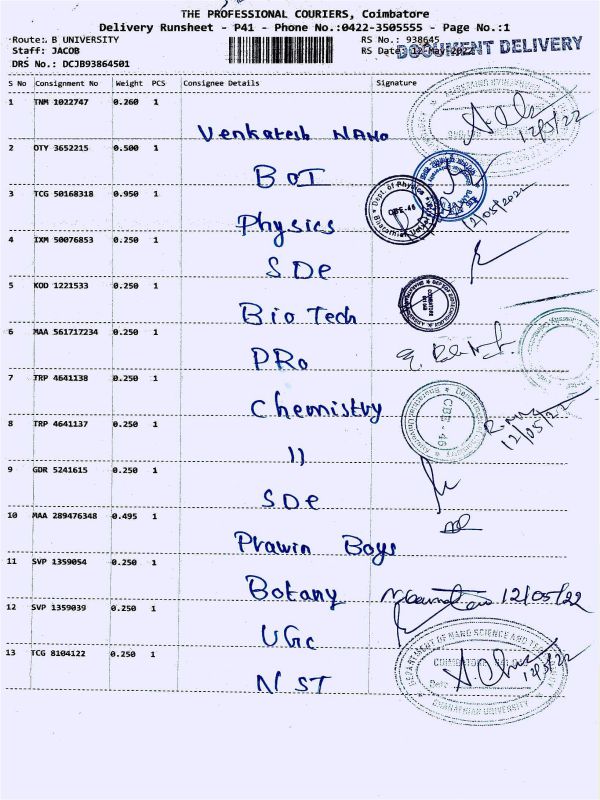 THE PROFESSIONAL COURIERS, Coimbatore
Delivery Runsheet - P41 - Phone No.:0422-3505555 - Page No.:1
Route: B UNIVERSITY
RS No.: 938645
Staff: JACOB
RS Date: 12-May-2022
DOCUMENT DELIVERY
DRS No.: DCJB93864501
S No Consignment No Weight PCS Consignee Details Signature
1 TNM 1022747 0.260 1
Venkatesh NANO
12/5/22
2 OTY 3652215 0.500 1
BOI
3 TCG 50168318 0.950 1
Dept. of Physics
CBE-46
Physics
12/05/2022
4 IXM 50076853 0.250 1
SDe
5 KOD 1221533 0.250 1
Bio Tech
6 MAA 561717234 0.250 1
PRo
7 TRP 4641138 0.250 1
Chemistry
CBE-46
12/05/22
8 TRP 4641137 0.250 1
11
9 GDR 5241615 0.250 1
SDe
10 MAA 289476348 0.495 1
Prawin Boys
11 SVP 1359054 0.250 1
Botany
12/05/22
12 SVP 1359039 0.250 1
UGc
13 TCG 8104122 0.250 1
DEPARTMENT OF NANO SCIENCE AND TECHNOLOGY
COIMBATORE
BHARATHIAR UNIVERSITY
12/5/22
N ST